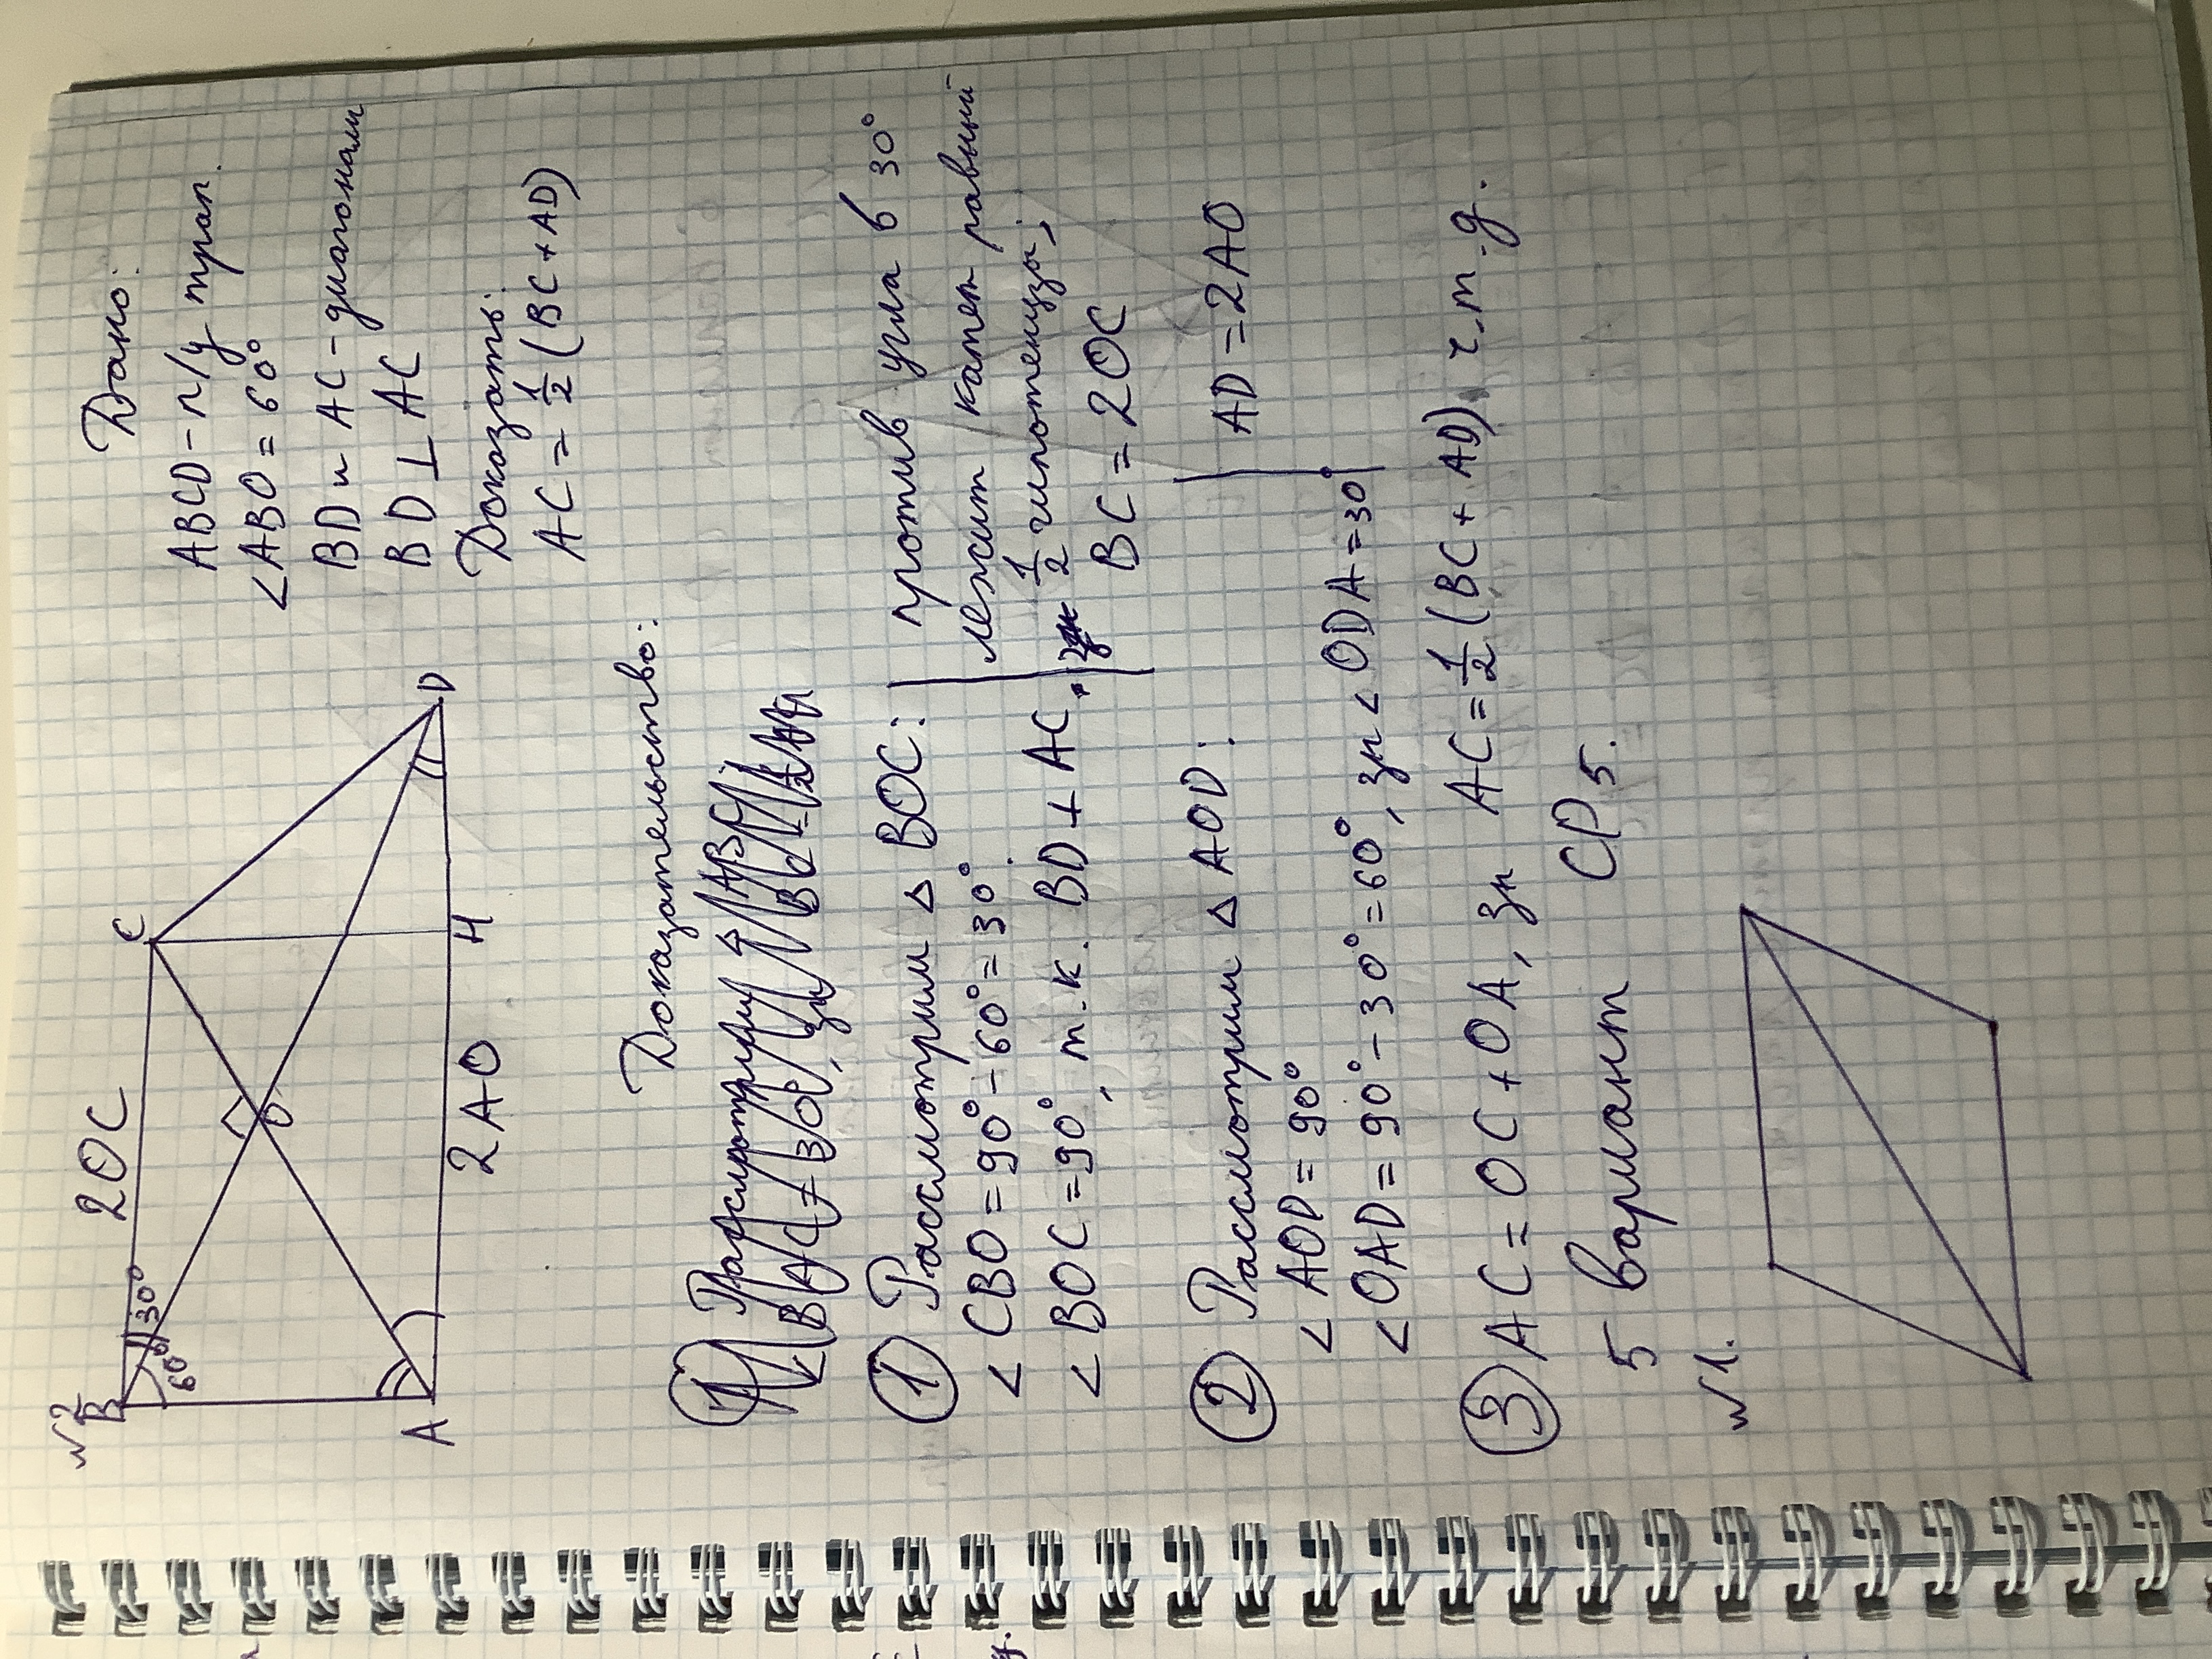 №2
B
2OC
C
60° 30°
O
A
D
2AO
H
Дано:
ABCD – п/у трап.
∠ABO = 60°
BD и AC – диагонали
BD ⊥ AC
Доказать:
AC = 1/2 (BC + AD)
Доказательство:
① Рассмотрим △ ABC:
∠ BAC = 30°, зн BC =
① Рассмотрим △ BOC:
∠ CBO = 90° – 60° = 30°.
∠ BOC = 90°, т.к. BD ⊥ AC.
против угла в 30°
лежит катет равный
1/2 гипотенузы;
BC = 2OC
② Рассмотрим △ AOD:
∠ AOD = 90°
∠ OAD = 90° – 30° = 60°, зн ∠ ODA = 30°
AD = 2AO
③ AC = OC + OA, зн AC = 1/2 (BC + AD) ч.т.д.
5 вариант СР 5.
№1.